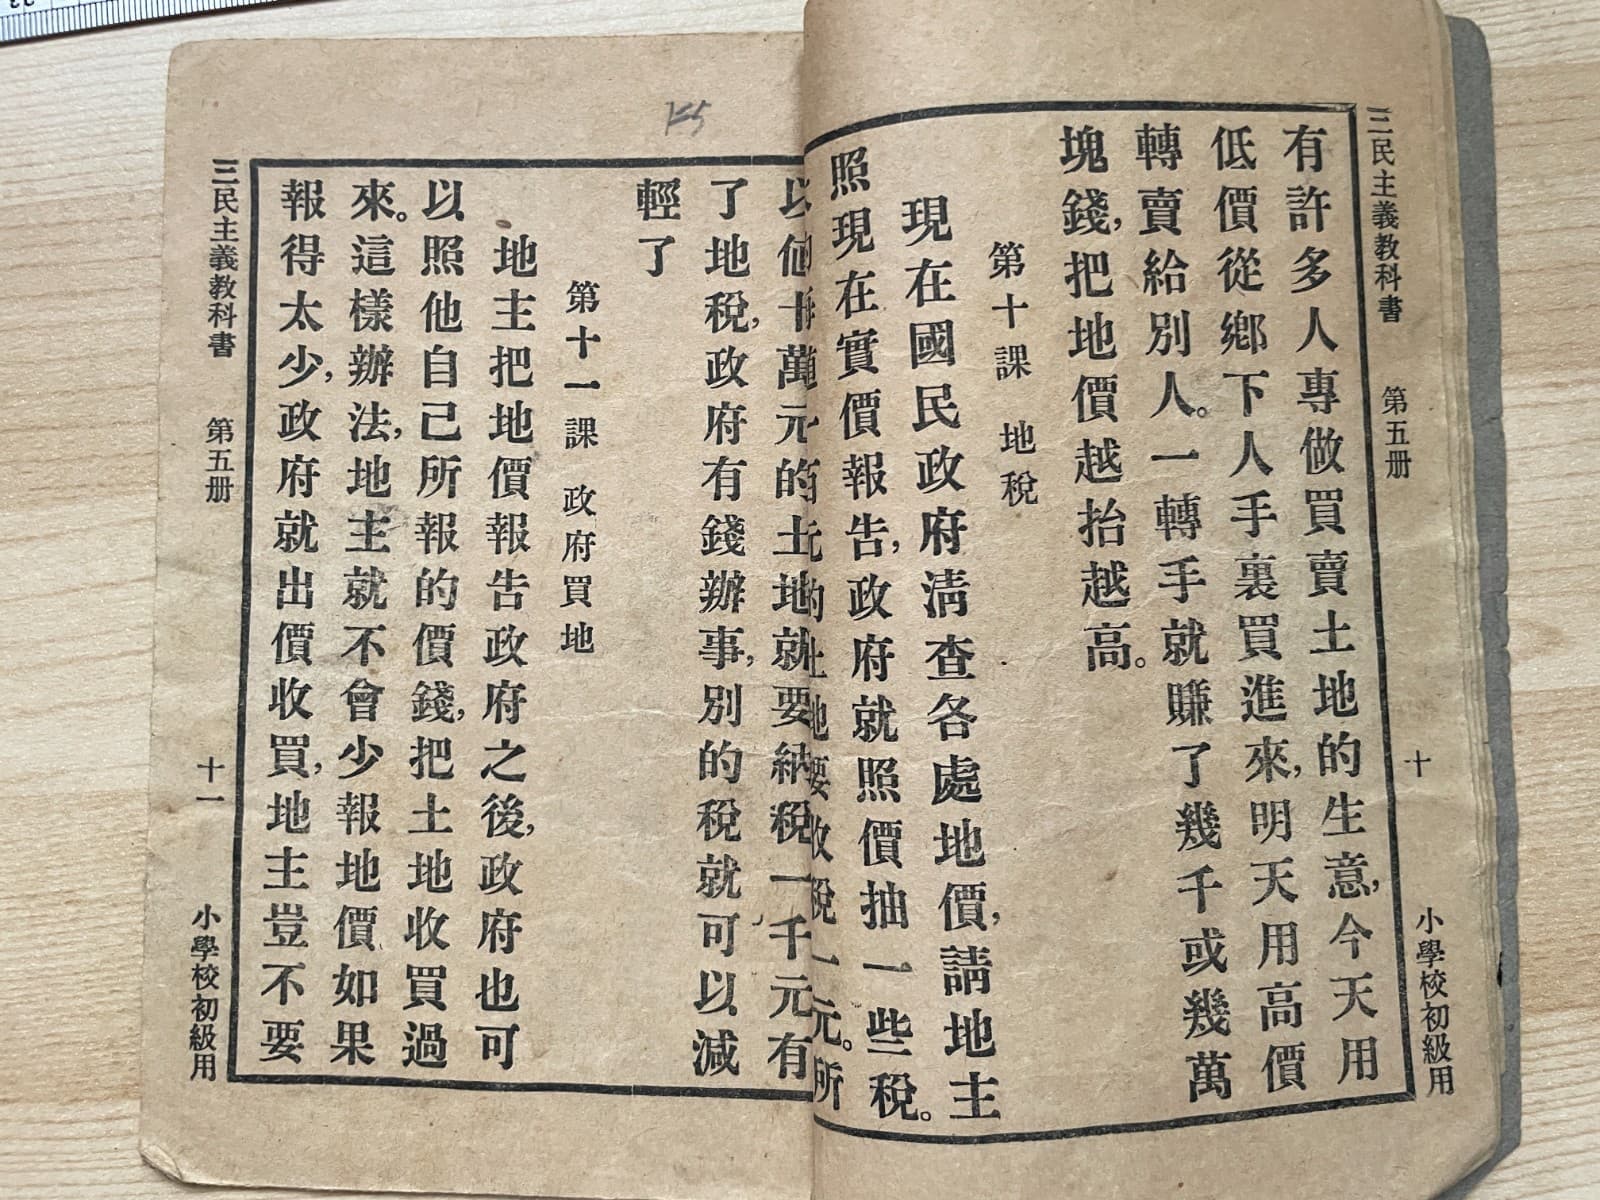 三民主義教科書 第五册 十 小學校初級用
有許多人專做買賣土地的生意,今天用
低價從鄉下人手裏買進來,明天用高價
轉賣給別人。一轉手就賺了幾千或幾萬
塊錢,把地價越抬越高。
第十課 地稅
現在國民政府清查各處地價,請地主
照現在實價報告,政府就照價抽一些稅。
元的土地要收稅一元。所
以他十萬元的土地就要納稅一千元有
了地稅,政府有錢辦事,別的稅就可以減
輕了
第十一課 政府買地
地主把地價報告政府之後,政府也可
以照他自己所報的價錢,把土地收買過
來。這樣辦法,地主就不會少報地價如果
報得太少,政府就出價收買,地主豈不要
三民主義教科書 第五册 十一 小學校初級用